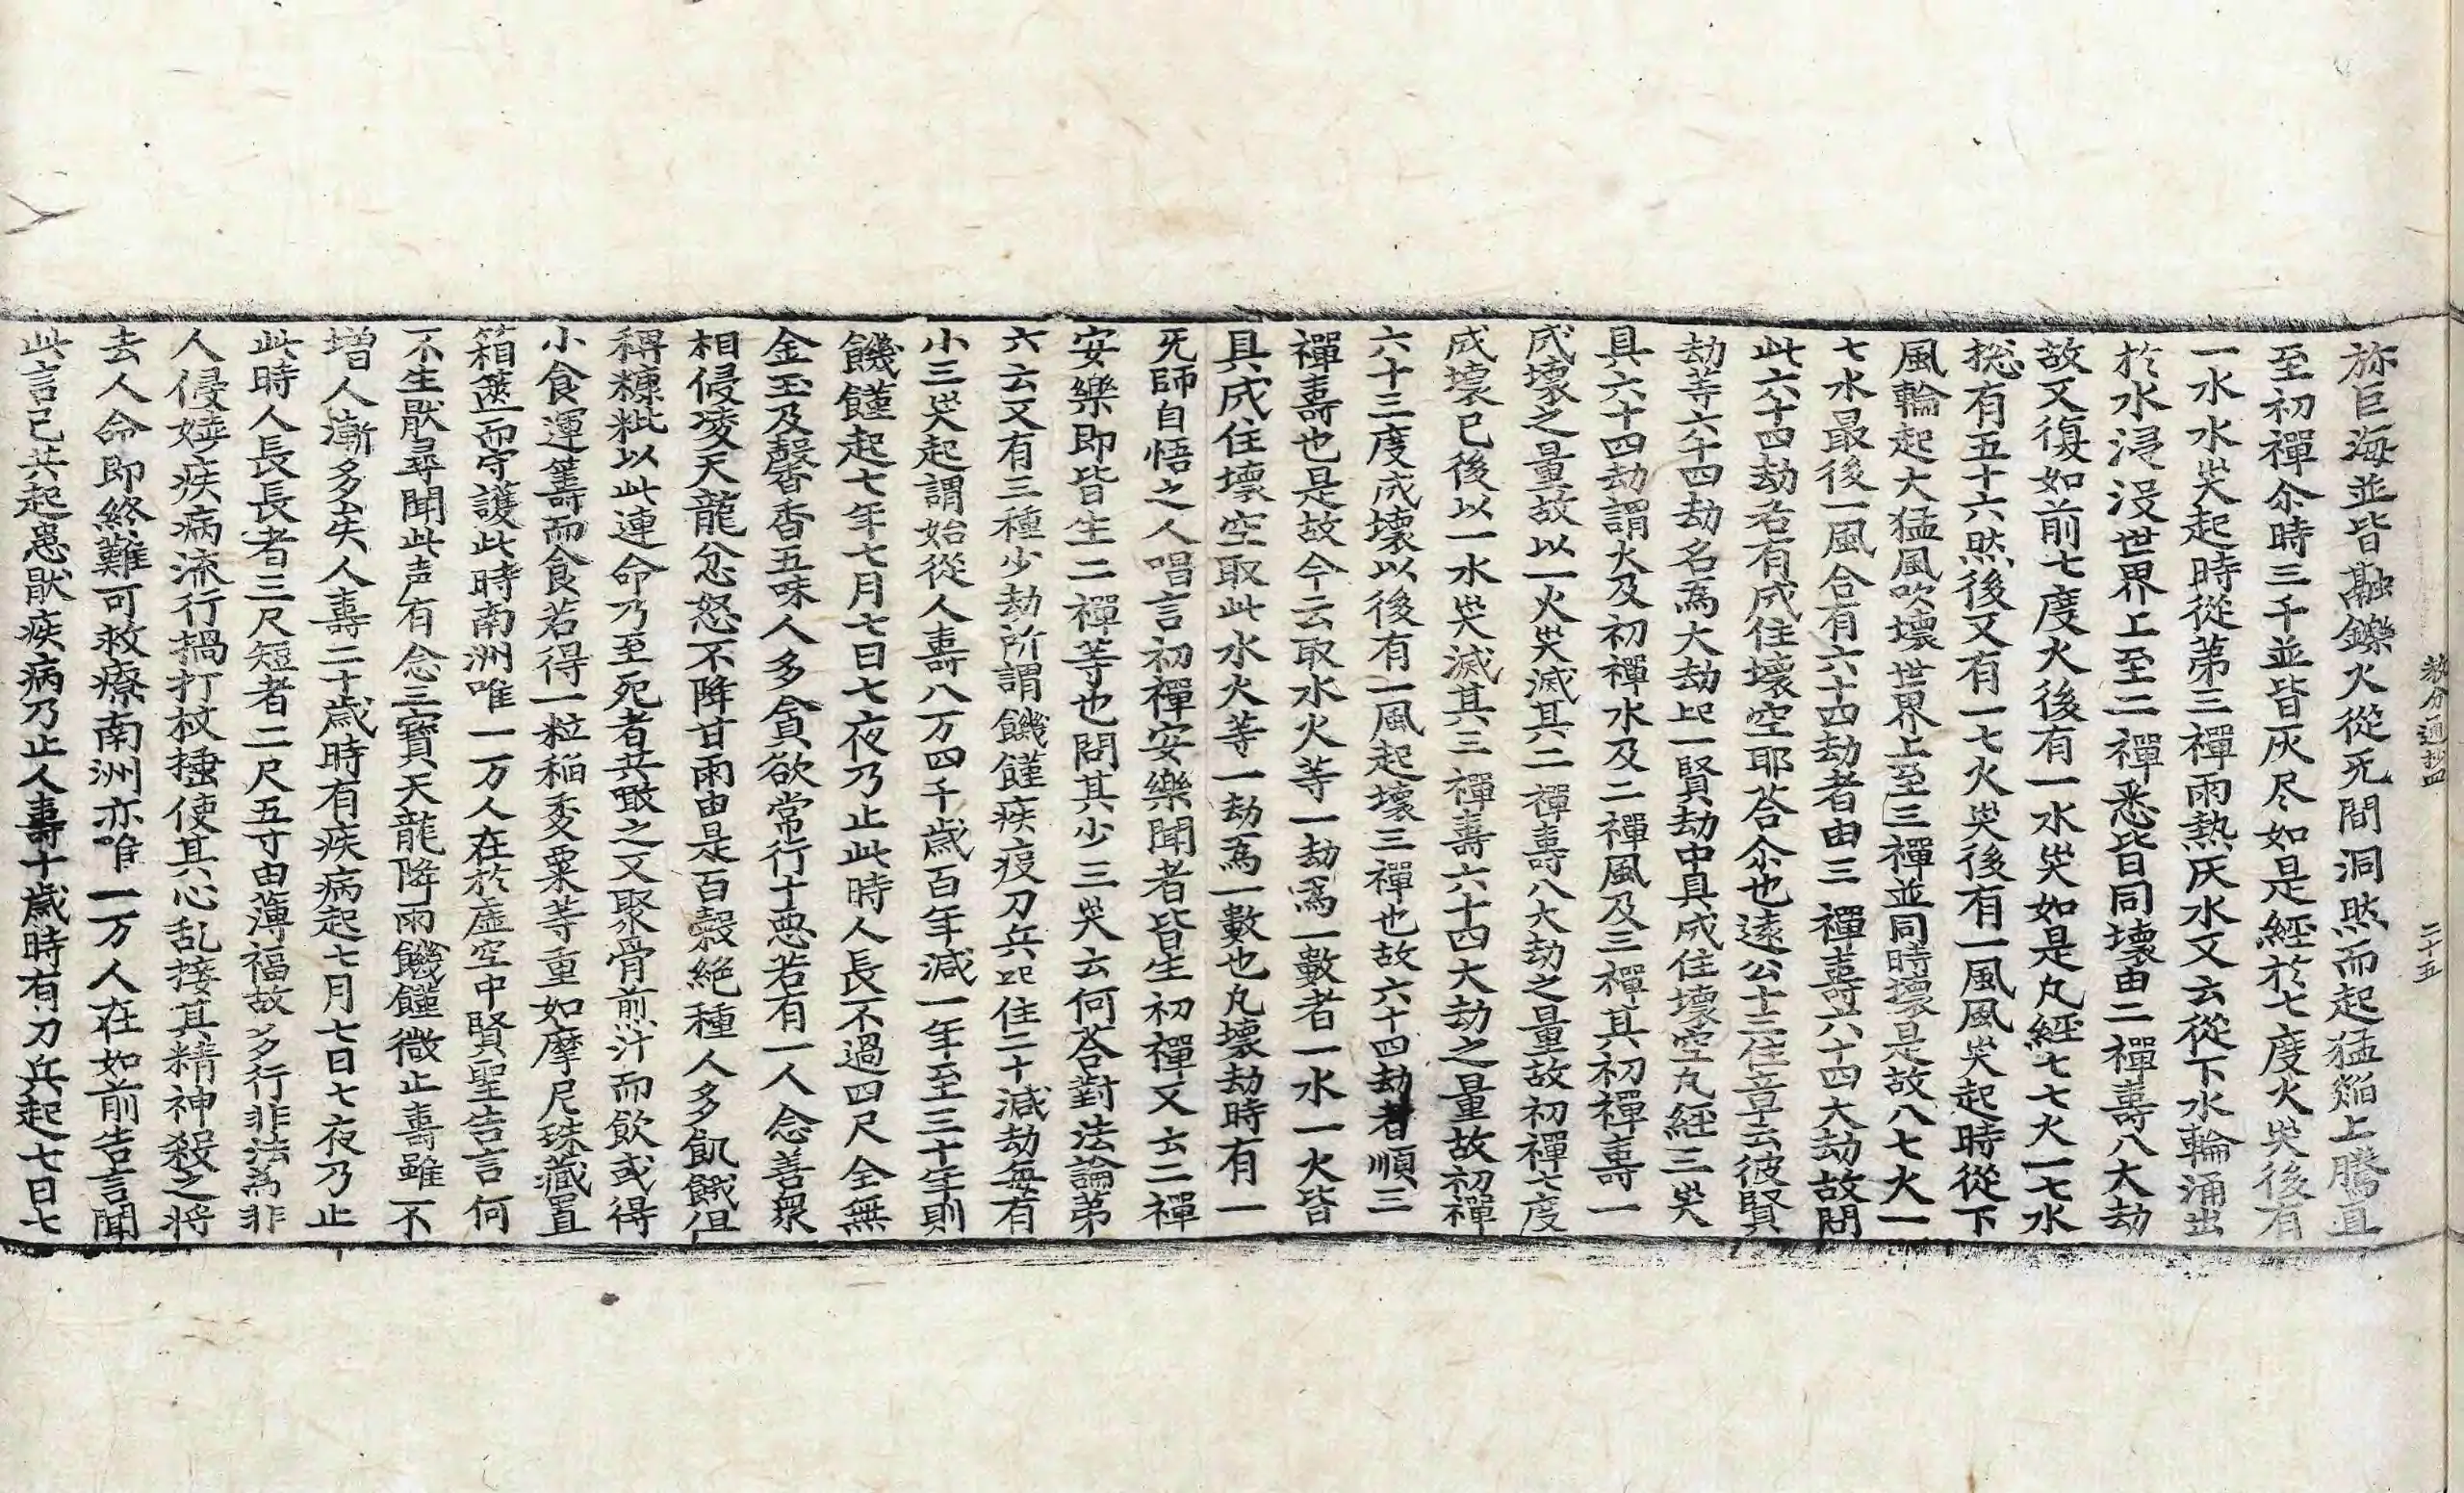 教分通抄四 二十五
弥巨海並皆融鑠火從无間洞然而起猛㷔上騰直
至初禪尒時三千並皆灰尽如是經於七度火灾後有
一水水灾起時從第三禪雨熱灰水又云從下水輪涌出
於水浸没世界上至二禪悉皆同壞由二禪壽八大劫
故又復如前七度火後有一水灾如是凡經七七火一七水
㧾有五十六然後又有一七火灾後有一風風灾起時從下
風輪起大猛風吹壞世界上至三禪並同時壞是故八七火一
七水最後一風合有六十四劫者由三禪壽六十四大劫故問
此六十四劫各有成住壞空耶荅尒也遠公十三住章云彼賢
劫等六十四劫名爲大劫於一賢劫中具成住壞空凡經三灾
具六十四劫謂火及初禪水及二禪風及三禪其初禪壽一
成壞之量故以一火灾滅其二禪壽八大劫之量故初禪七度
成壞已後以一水灾滅其三禪壽六十四大劫之量故初禪
六十三度成壞以後有一風起壞三禪也故六十四劫者順三
禪壽也是故今云取水火等一劫爲一數者一水一火皆
具成住壞空取此水火等一劫爲一數也凡壞劫時有一
无師自悟之人唱言初禪安樂聞者皆生初禪又云二禪
安樂即皆生二禪等也問其少三灾云何荅對法論第
六云又有三種少劫所謂饑饉疾疫刀兵於住二十減劫每有
小三灾起謂始從人壽八万四千歲百年減一年至三十年則
饑饉起七年七月七日七夜乃止此時人長不過四尺全無
金玉及馨香五味人多貪欲常行十悪若有一人念善衆
相侵凌天龍忿怒不降甘雨由是百穀絶種人多飢餓但
稱糠粃以此連命乃至死者共噉之又聚骨煎汁而飲或得
小食運籌而食若得一粒稻麥粟等重如摩尼珠藏置
箱篋而守護此時南洲唯一万人在於虛空中賢聖告言何
不生猒尋聞此声有念三寶天龍降雨饑饉微止壽雖不
增人漸多矣人壽二十歲時有疾病起七月七日七夜乃止
此時人長長者三尺短者二尺五寸由薄福故多行非法爲非
人侵嬈疾病流行撾打杖捶使其心乱接其精神殺之將
去人命即終難可救療南洲亦唯一万人在如前告言聞
此言已共起患猒疾病乃止人壽十歲時有刀兵起七日七